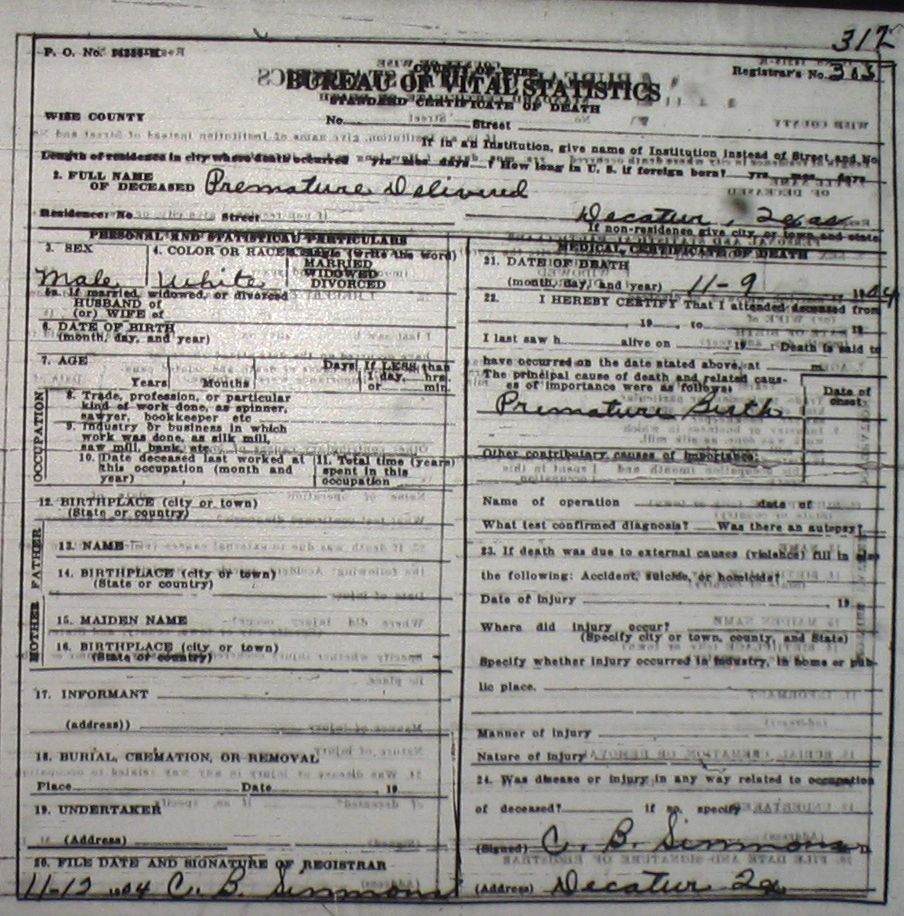 312
P. O. No.
Registrar's No. 303
COUNTY OF WISE
BUREAU OF VITAL STATISTICS
STANDARD CERTIFICATE OF DEATH
WISE COUNTY
No. Street
If in an Institution, give name of Institution instead of Street and No.
Length of residence in city where death occurred yrs mos days ? How long in U. S. if foreign born? yrs mos days
2. FULL NAME
OF DECEASED Premature Delivered
Residence: No Street Decatur, Texas
If non-residence give city, or town and state
PERSONAL AND STATISTICAL PARTICULARS
3. SEX
Male
4. COLOR OR RACE
White
Single (write the word)
MARRIED
WIDOWED
DIVORCED
5a. If married, widowed, or divorced
HUSBAND of
(or) WIFE of
6. DATE OF BIRTH
(month, day, and year)
7. AGE
Years Months Days If LESS than
1 day, hrs
or min.
OCCUPATION
8. Trade, profession, or particular
kind of work done, as spinner,
sawyer, bookkeeper etc
9. Industry or business in which
work was done, as silk mill,
saw mill, bank, etc
10. Date deceased last worked at
this occupation (month and
year)
11. Total time (years)
spent in this
occupation
12. BIRTHPLACE (city or town)
(State or country)
FATHER
13. NAME
14. BIRTHPLACE (city or town)
(State or country)
MOTHER
15. MAIDEN NAME
16. BIRTHPLACE (city or town)
(State or country)
17. INFORMANT
(address))
18. BURIAL, CREMATION, OR REMOVAL
Place Date 19
19. UNDERTAKER
(Address)
20. FILE DATE AND SIGNATURE OF REGISTRAR
11-12 C. B. Simmons
MEDICAL CERTIFICATE OF DEATH
21. DATE OF DEATH
(month, day, and year) 11-9
22. I HEREBY CERTIFY That I attended deceased from
, 19 , to , 19
I last saw h alive on , 19 Death is said to
have occurred on the date stated above, at m.
The principal cause of death and related caus-
es of importance were as follows:
Date of
onset
Premature Birth
Other contributory causes of importance:
Name of operation date of
What test confirmed diagnosis? Was there an autopsy?
23. If death was due to external causes (violence) fill in also
the following: Accident, suicide, or homicide?
Date of injury , 19
Where did injury occur?
(Specify city or town, county, and State)
Specify whether injury occurred in industry, in home or pub-
lic place.
Manner of injury
Nature of injury
24. Was disease or injury in any way related to occupation
of deceased? if so, specify
(Signed) C. B. Simmons
(Address) Decatur